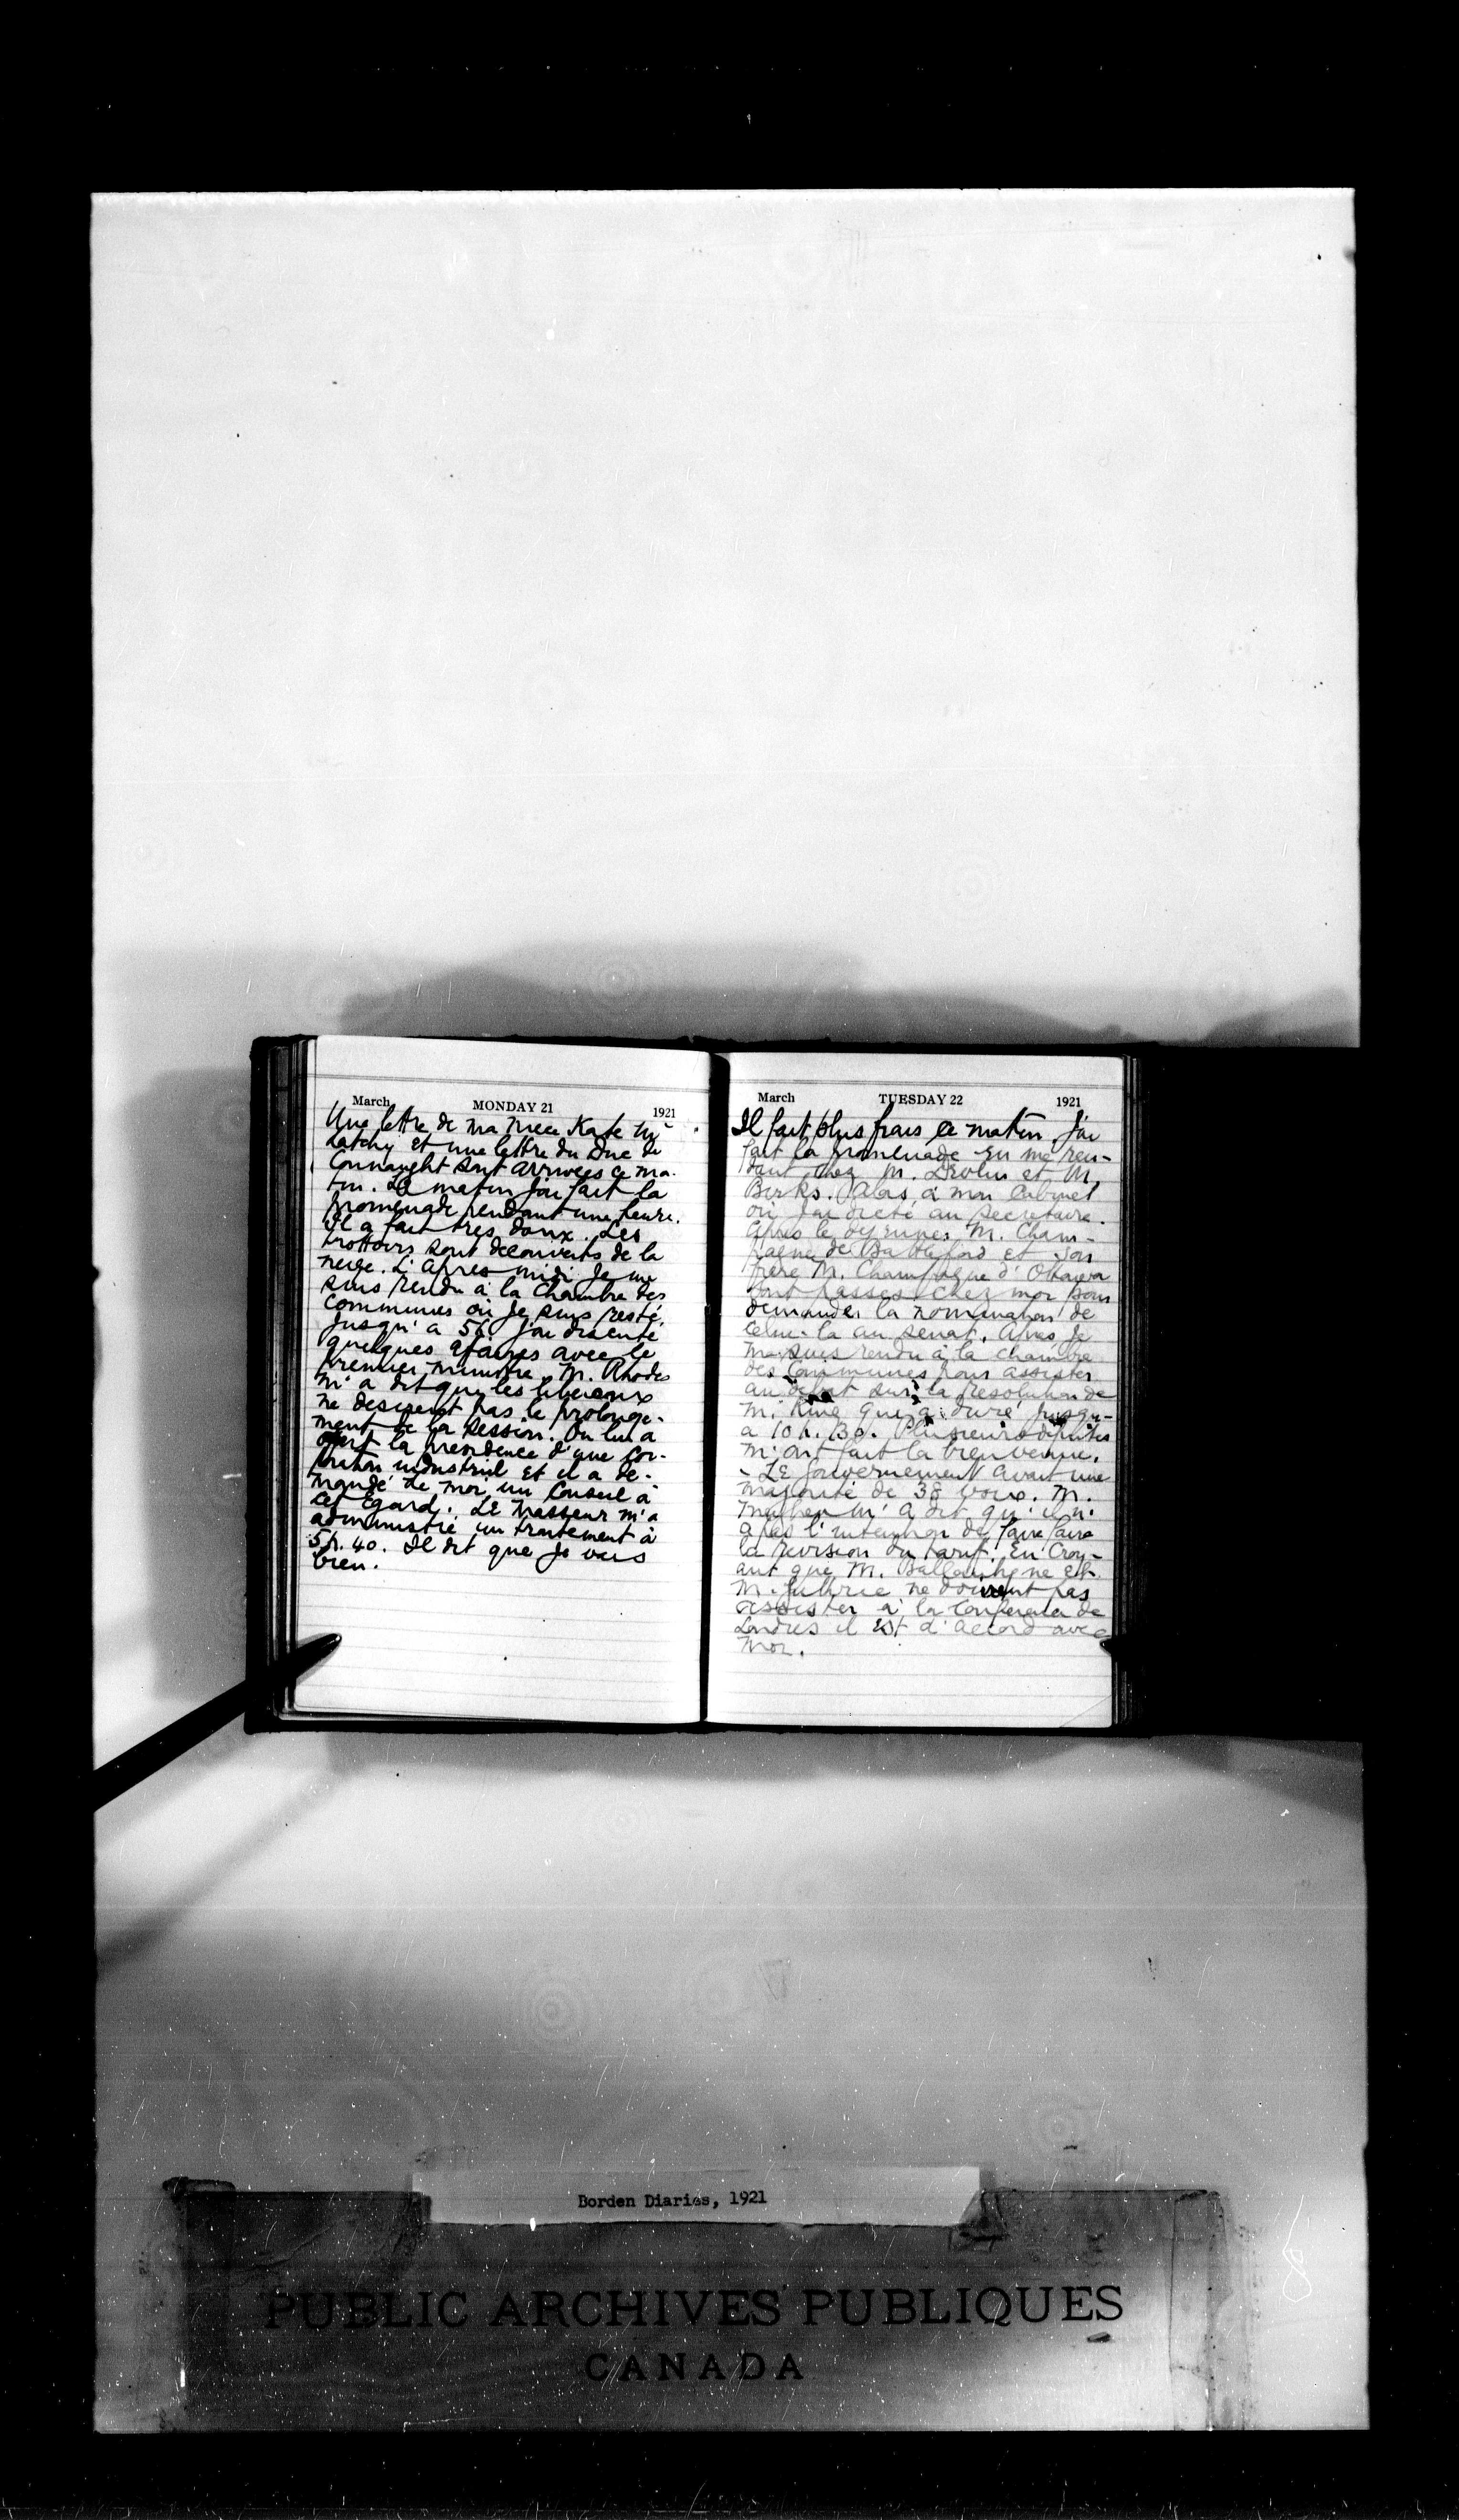 March MONDAY 21 1921
Une lettre de ma niece Kate Mc
Latchy et une lettre du Duc de
Connaught sont arrivees ce ma-
tin. Le matin j'ai fait la
promenade pendant une heure.
Il a fait tres doux. Les
trottoirs sont decouverts de la
neige. L'apres-midi je me
suis rendu à la Chambre des
Communes où je suis resté
jusqu'a 5h. J'ai discuté
quelques afaires avec le
premier ministre. M. Rhodes
m'a dit que les liberaux
ne desirent pas le prolonge-
ment de la session. On lui a
offert la presidence d'une cor-
poration industriel et il a de-
mandé de moi un conseil à
cet égard. Le masseur m'a
administré un traitement à
5h. 40. Il dit que je vais
bien.
March TUESDAY 22 1921
Il fait plus frais ce matin. J'ai
fait la promenade en me ren-
dant chez M. Devlin et M.
Birks. Alors à mon cabinet
où j'ai dicté au secretaire.
Apres le dejeuner M. Cham-
pagne de Battleford et son
frère M. Champagne d'Ottawa
sont passes chez moi pour
demander la nomination de
celui-la au senat. Apres je
me suis rendu à la chambre
des Communes pour assister
au debat sur la resolution de
M. King qui a duré jusqu-
a 10 h. 30. Plusieurs deputés
m'ont fait la bienvenue.
- Le gouvernement avait une
majorité de 38 voix. M.
Meighen m'a dit qu'il n'
a pas l'intention de faire faire
la revision du tarif. En croy-
ant que M. Ballantyne et
M. Guthrie ne doivent pas
assister à la Conference de
Londres il est d'accord avec
moi.
Borden Diaries, 1921
PUBLIC ARCHIVES PUBLIQUES
CANADA